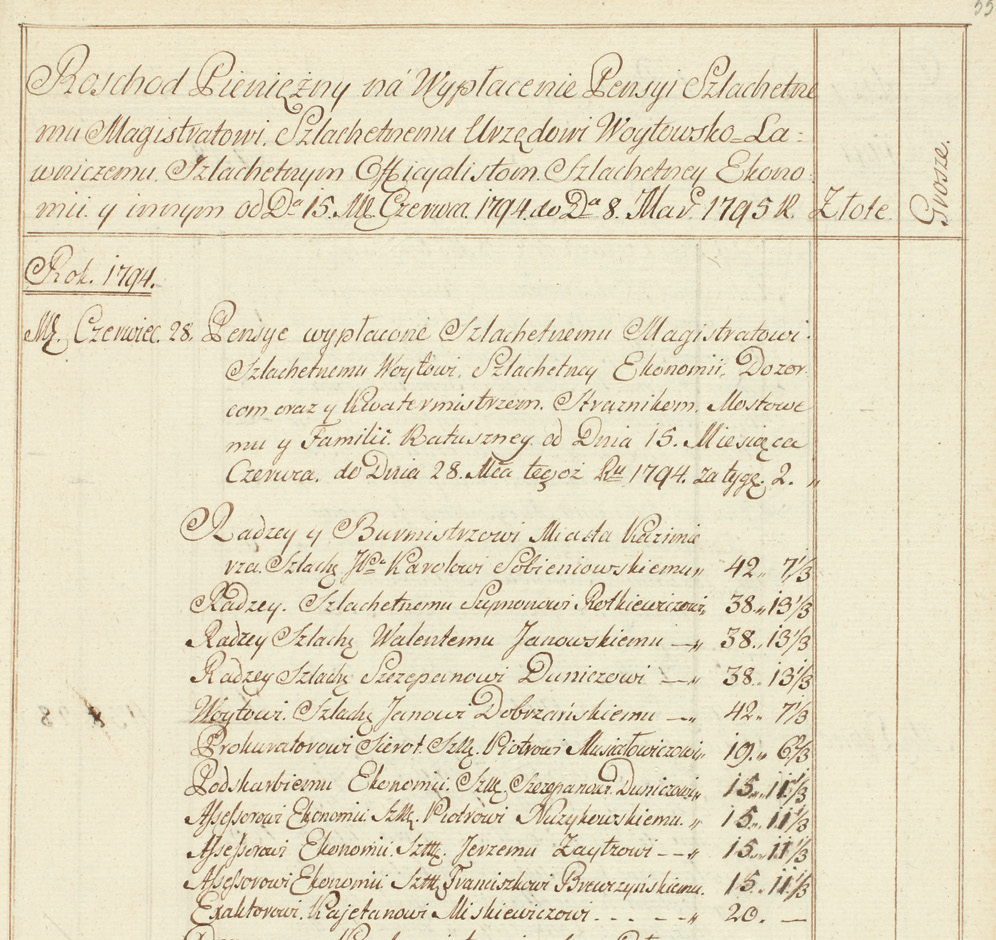 55
Roschod Pieniężny ná Wypłacenie Pensyi Szlachetne
mu Magistratowi. Szlachetnemu Urzędowi Woytowsko=Ła=
wniczemu. Szlachetnym Officyalistom. Szlachetney Ekono=
mii. y innym od Da 15. Mca Czerwca. 1794. do Da 8. Mar. 1795 R. Złote. Grosze.
Rok. 1794.
Mc. Czerwiec. 28. Pensye wypłacone Szlachetnemu Magistratowi.
Szlachetnemu Woytowi. Szlachetney Ekonomii, Dozor
com oraz y Kwatermistrzem. Straznikom. Mostowe
mu y Familii. Ratuszney od Dnia 15. Miesiąca
Czerwca. do Dnia 28. Mca tegoż Ru 1794. za tyg. 2. „
Radzey y Burmistrzowi Miasta Kazimie
rza. Szlache JPu Karolowi Sobieniowskiemu „ 42 „ 7 1/3
Radzey. Szlachetnemu Szymonowi Rotkiewiczowi „ 38 „ 13 1/3
Radzey Szlache Walentemu Janowskiemu — „ 38 „ 13 1/3
Radzey Szlache Szczepanowi Duniczowi — „ 38 „ 13 1/3
Woytowi. Szlache Janowi Dobrzańskiemu — „ 42 „ 7 1/3
Prokuratorowi Sierot. Piotrowi Musiałowiczowi „ 19 „ 6 2/3
Podskarbiemu Ekonomii. Szczepanowi Duniczowi „ 15 „ 11 1/3
Assessorowi Ekonomii Piotrowi Nuzykowskiemu „ 15 „ 11 1/3
Assessorowi Ekonomii. Jerzemu Zaytzowi — — „ 15 „ 11 1/3
Assessorowi Ekonomii Franciszkowi Brewrzyńskiemu. 15 „ 11 1/3
Exaktorowi. Kajetanowi Miskiewiczowi . . . „ 20. —